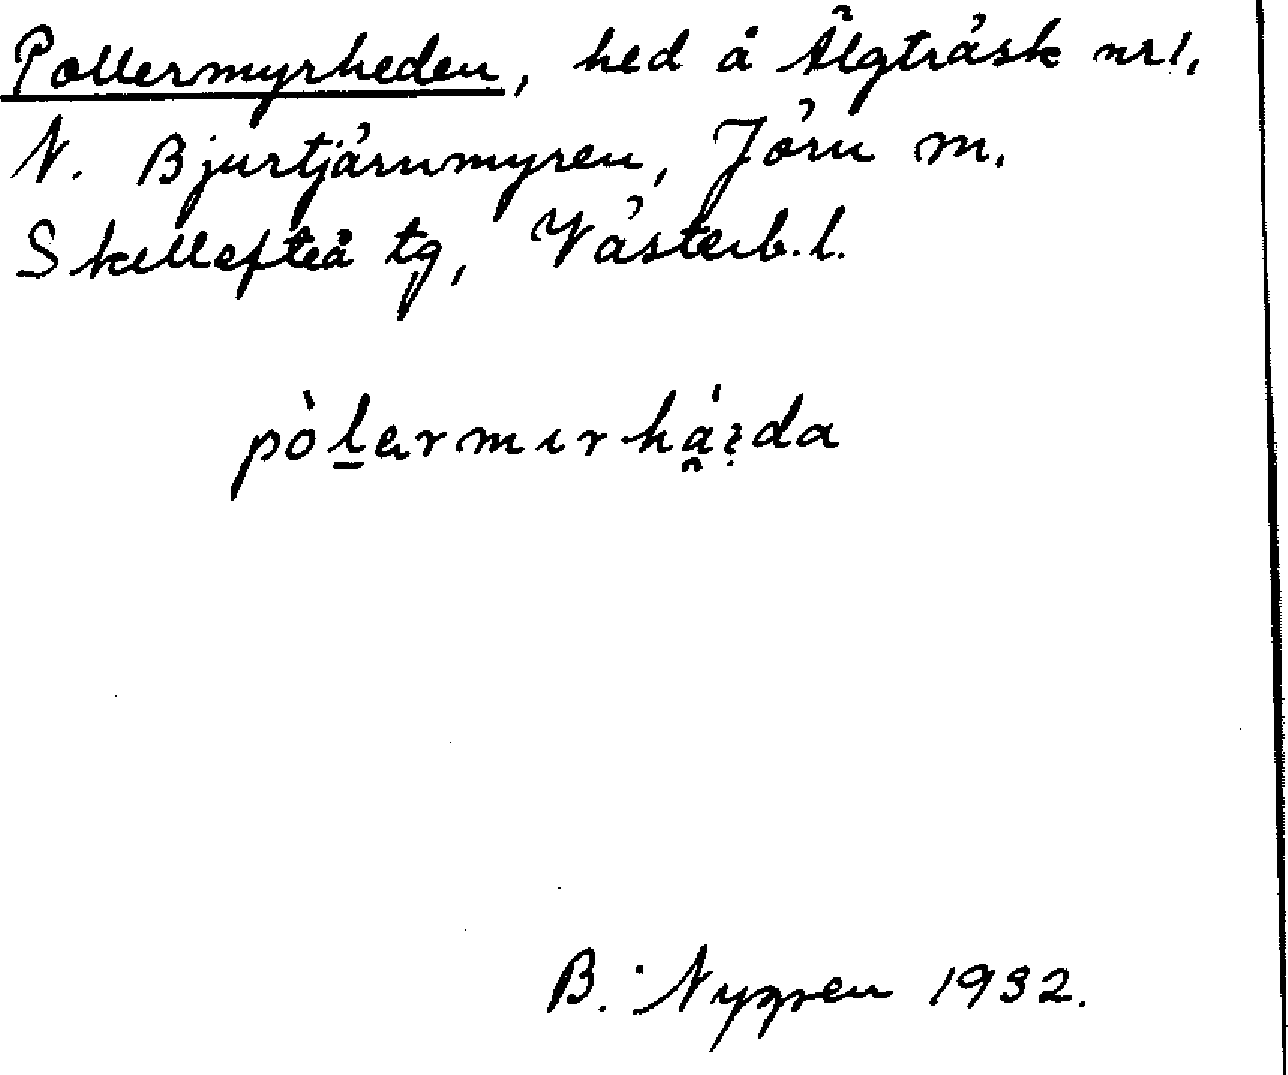 Pollermyrheden, hed å Älgträsk nr 1,
N. Bjurtjärnmyren, Jörn m.
Skellefteå tg, Västerb. l.
pòlermırhá̯ida
B. Nygren 1932.